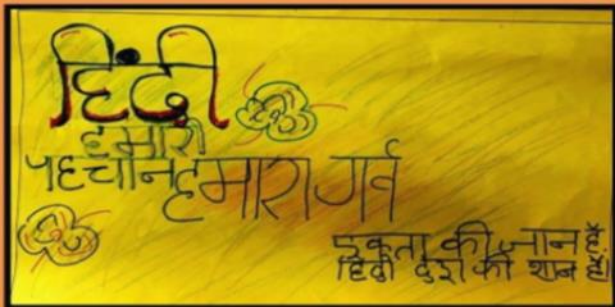 हिंदी
हमारी
पहचान हमारा गर्व
एकता की जान हैं,
हिंदी देश की शान हैं।